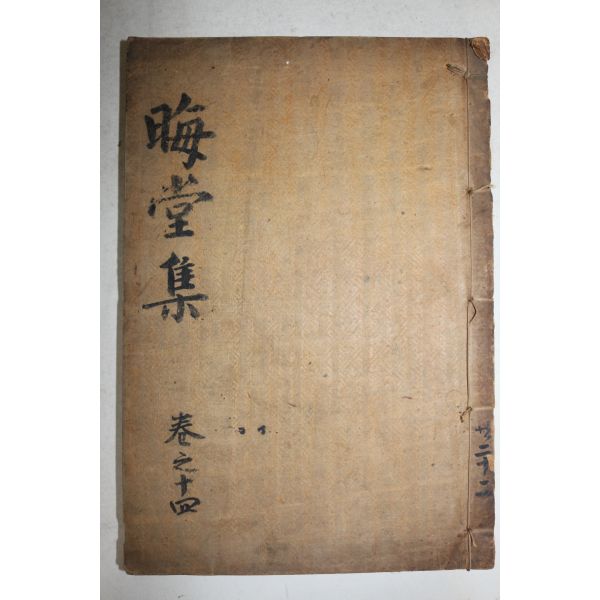 晦堂集
卷之十四
共二十二